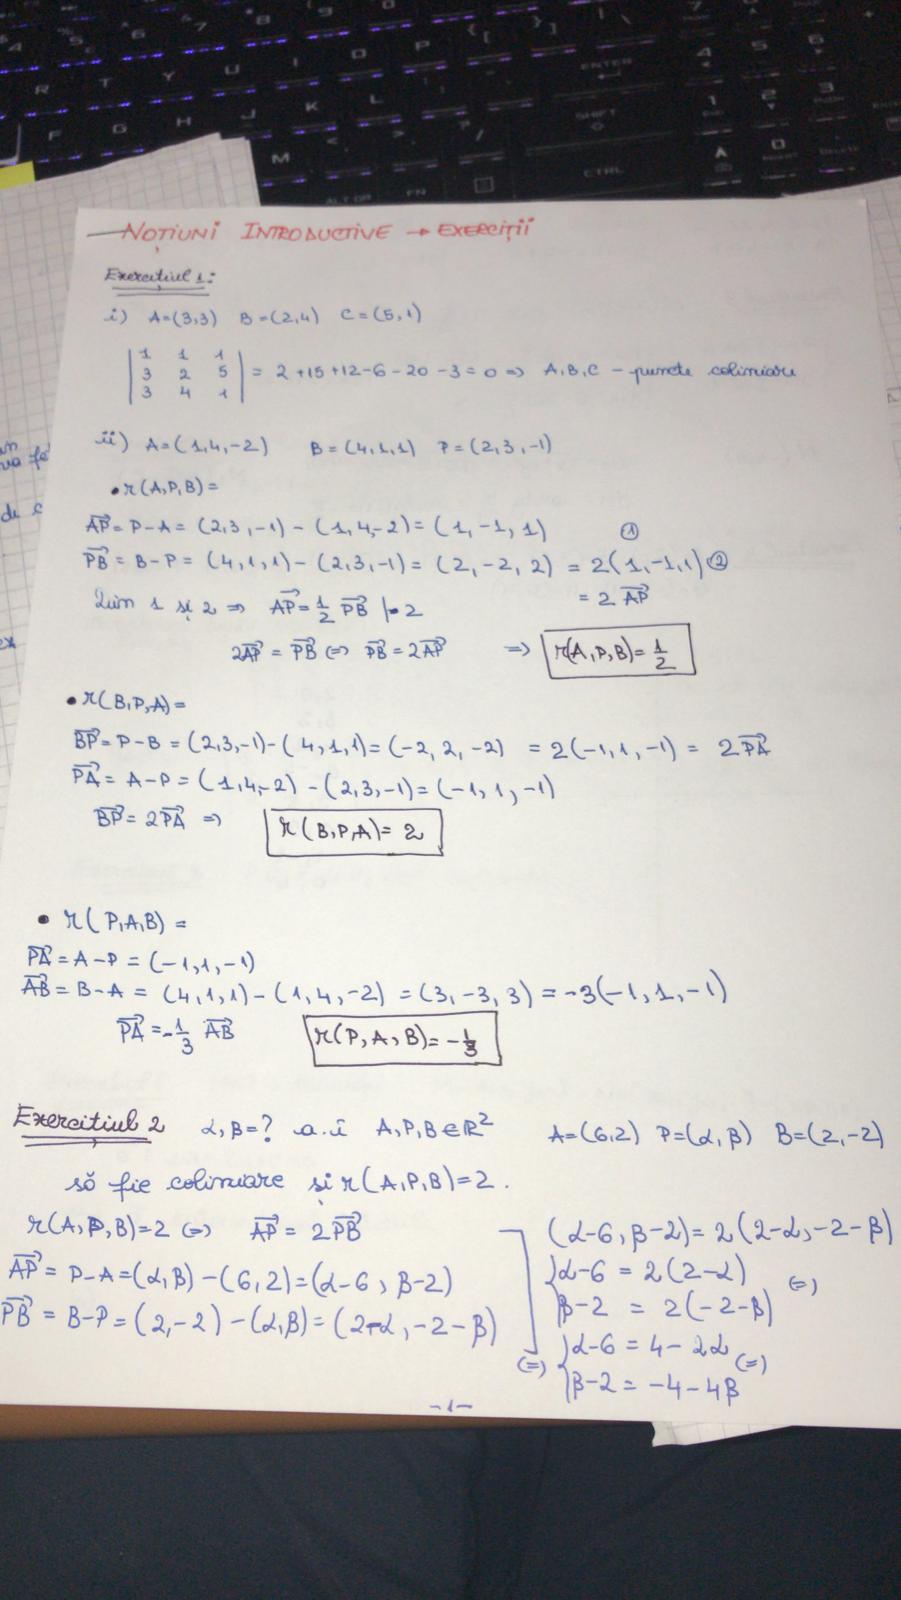 NOȚIUNI INTRODUCTIVE → EXERCIȚII
Exercitiul 1:
i) A=(3,3) B=(2,4) C=(5,1)
| 1 1 1 |
| 3 2 5 | = 2+15+12-6-20-3=0 => A,B,C - puncte coliniare
| 3 4 1 |
ii) A=(1,4,-2) B=(4,1,1) P=(2,3,-1)
• r(A,P,B)=
AP = P-A = (2,3,-1) - (1,4,-2) = (1,-1,1) ①
PB = B-P = (4,1,1) - (2,3,-1) = (2,-2,2) = 2(1,-1,1) ②
= 2 AP
Din 1 și 2 => AP = 1/2 PB |·2
2AP = PB (=) PB = 2AP => r(A,P,B) = 1/2
• r(B,P,A)=
BP = P-B = (2,3,-1)-(4,1,1)=(-2,2,-2) = 2(-1,1,-1) = 2PA
PA = A-P = (1,4,-2) - (2,3,-1) = (-1,1,-1)
BP = 2PA => r(B,P,A) = 2
• r(P,A,B) =
PA = A-P = (-1,1,-1)
AB = B-A = (4,1,1)-(1,4,-2) = (3,-3,3) = -3(-1,1,-1)
PA = -1/3 AB r(P,A,B) = -1/3
Exercitiul 2 α,β=? a.î A,P,B∈R² A=(6,2) P=(α,β) B=(2,-2)
să fie coliniare și r(A,P,B)=2.
r(A,P,B)=2 (=) AP = 2PB
AP = P-A=(α,β)-(6,2)=(α-6, β-2)
PB = B-P=(2,-2)-(α,β)=(2-α,-2-β)
(α-6, β-2)=2(2-α,-2-β)
{α-6 = 2(2-α)
β-2 = 2(-2-β) (=)
(=) {α-6 = 4-2α (=)
β-2 = -4-4β
-1-